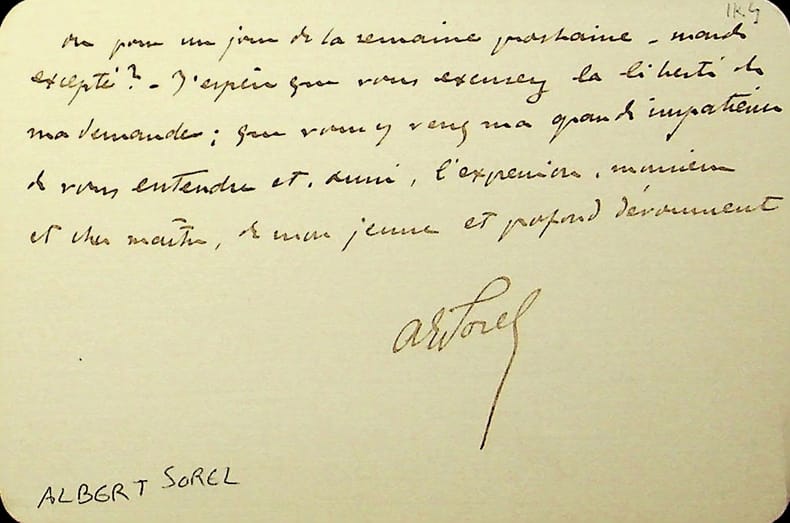 ou pour un jour de la semaine prochaine - mardi
excepté ? - J'espère que vous excusez la liberté de
ma demande ; que vous y verrez ma grande impatience
de vous entendre et, aussi, l'expression, monsieur
et cher maître, de mon jeune et profond dévouement
AESorel
ALBERT SOREL